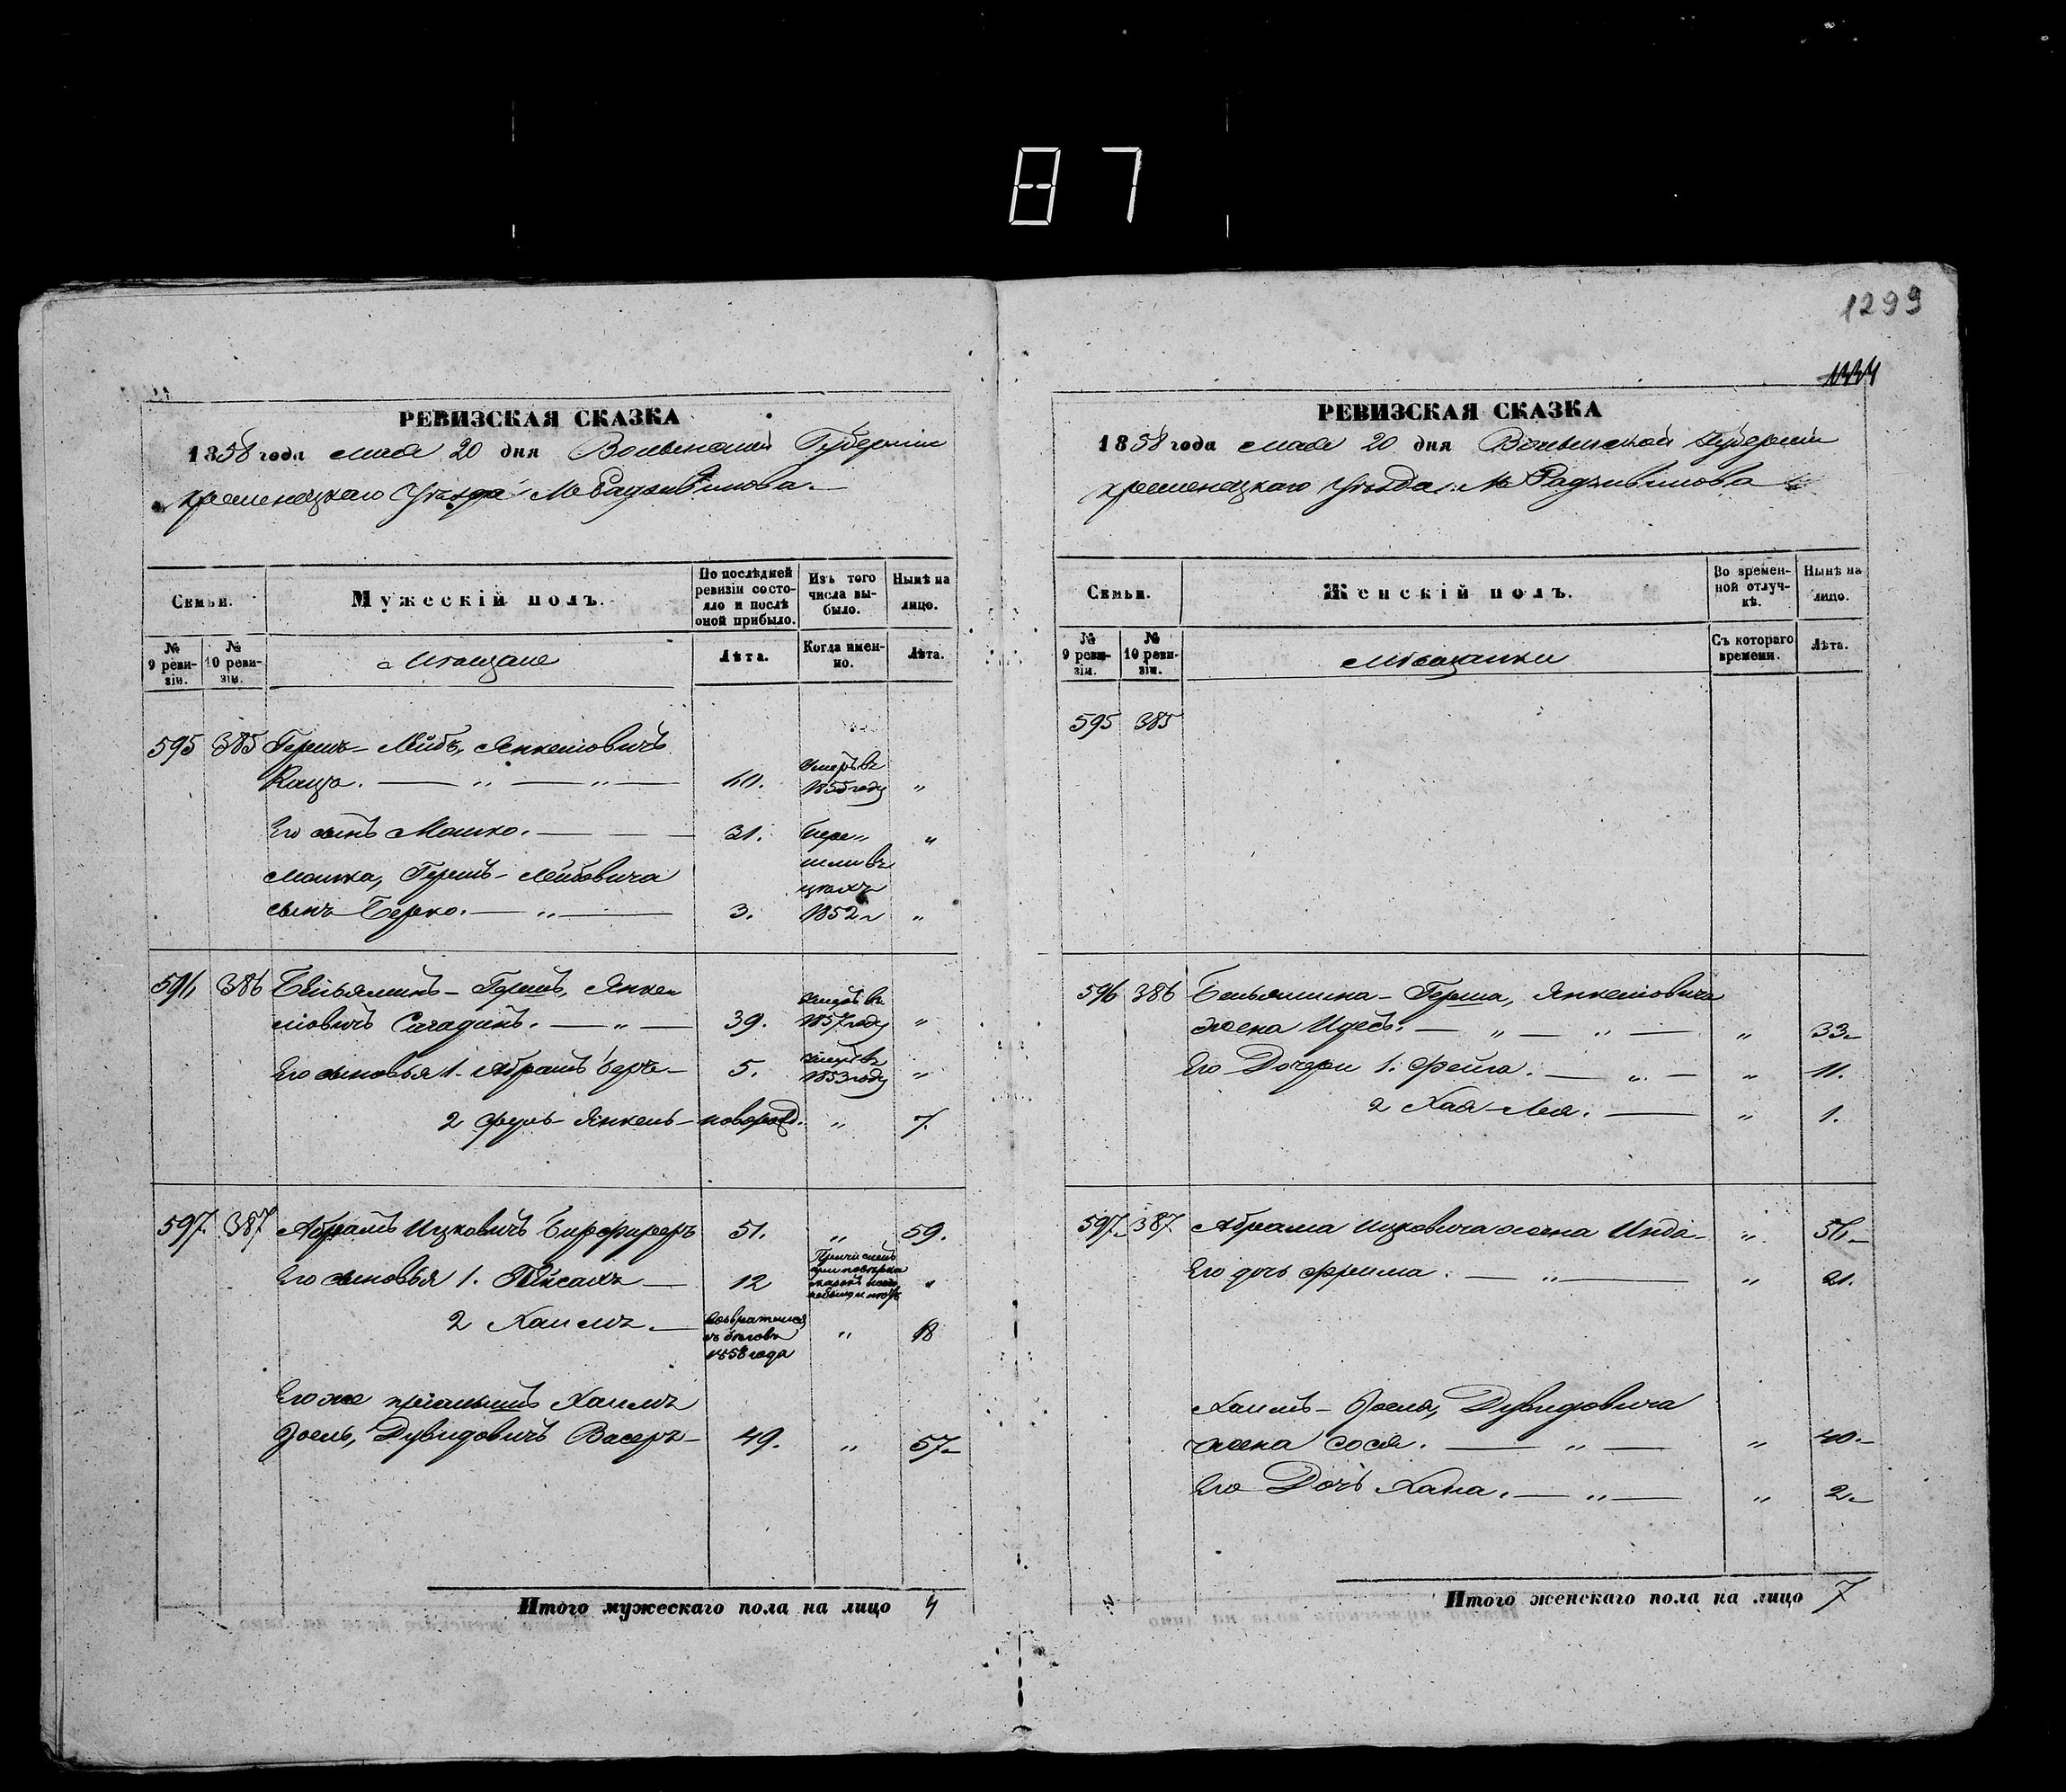 87
1299
РЕВИЗСКАЯ СКАЗКА
1858 года мая 20 дня Волынской Губернии
Кременецкаго Уѣзда М. Радзивилова
Семьи.
Мужескій полъ.
По послѣдней ревизіи состояло и послѣ оной прибыло.
Изъ того числа выбыло.
Нынѣ на лицо.
№ 9 ревизіи.
№ 10 ревизіи.
Мѣщане
Лѣта.
Когда именно.
Лѣта.
595 385 Гершъ-Лейбъ, Янкеліовичъ
умеръ въ
1855 году „
Его сынъ Мошко. 31. „
Мошка, Гершъ-Лейбовича
сынъ Берко. „ 3. 1852 „
596 386 Беньяминъ-Гершъ, Янке-
ліовичъ „ 39. умеръ въ 1857 году „
Его сыновья 1. Абрамъ Беръ 5. умеръ въ 1853 году „
2 Янкель новорожд. „ 7.
597. 387 Абрамъ Ицковичъ 51. „ 59.
Его сыновья 1. Пейсахъ 12 „
2 Хаимъ. Возвратился
1858 года „ 18
Его же Хаимъ
Іоель, Дувидовичъ Васеръ 49. „ 57
Итого мужескаго пола на лицо 4
РЕВИЗСКАЯ СКАЗКА
1858 года мая 20 дня Волынской Губерніи
Кременецкаго Уѣзда М. Радзивилова
Семьи.
Женскій полъ.
Во временной отлучкѣ.
Нынѣ на лицо.
№ 9 ревизіи.
№ 10 ревизіи.
Мѣщанки
Съ котораго времени.
Лѣта.
595 385
596 386 Беньямина-Герша, Янкеліовича
жена Идесъ. „ „ „ 33
Его Дочери 1. Фейга. „ „ 11.
2 Хая-Лея. „ 1.
597 387 Абрама Ицковича жена Инда „ 56
Его дочь Фрима. „ „ 21.
Хаимъ-Іоеля, Дувидовича
жена Сося. „ „ 40
Его Дочь Хана. „ „ 2
Итого женскаго пола на лицо 7